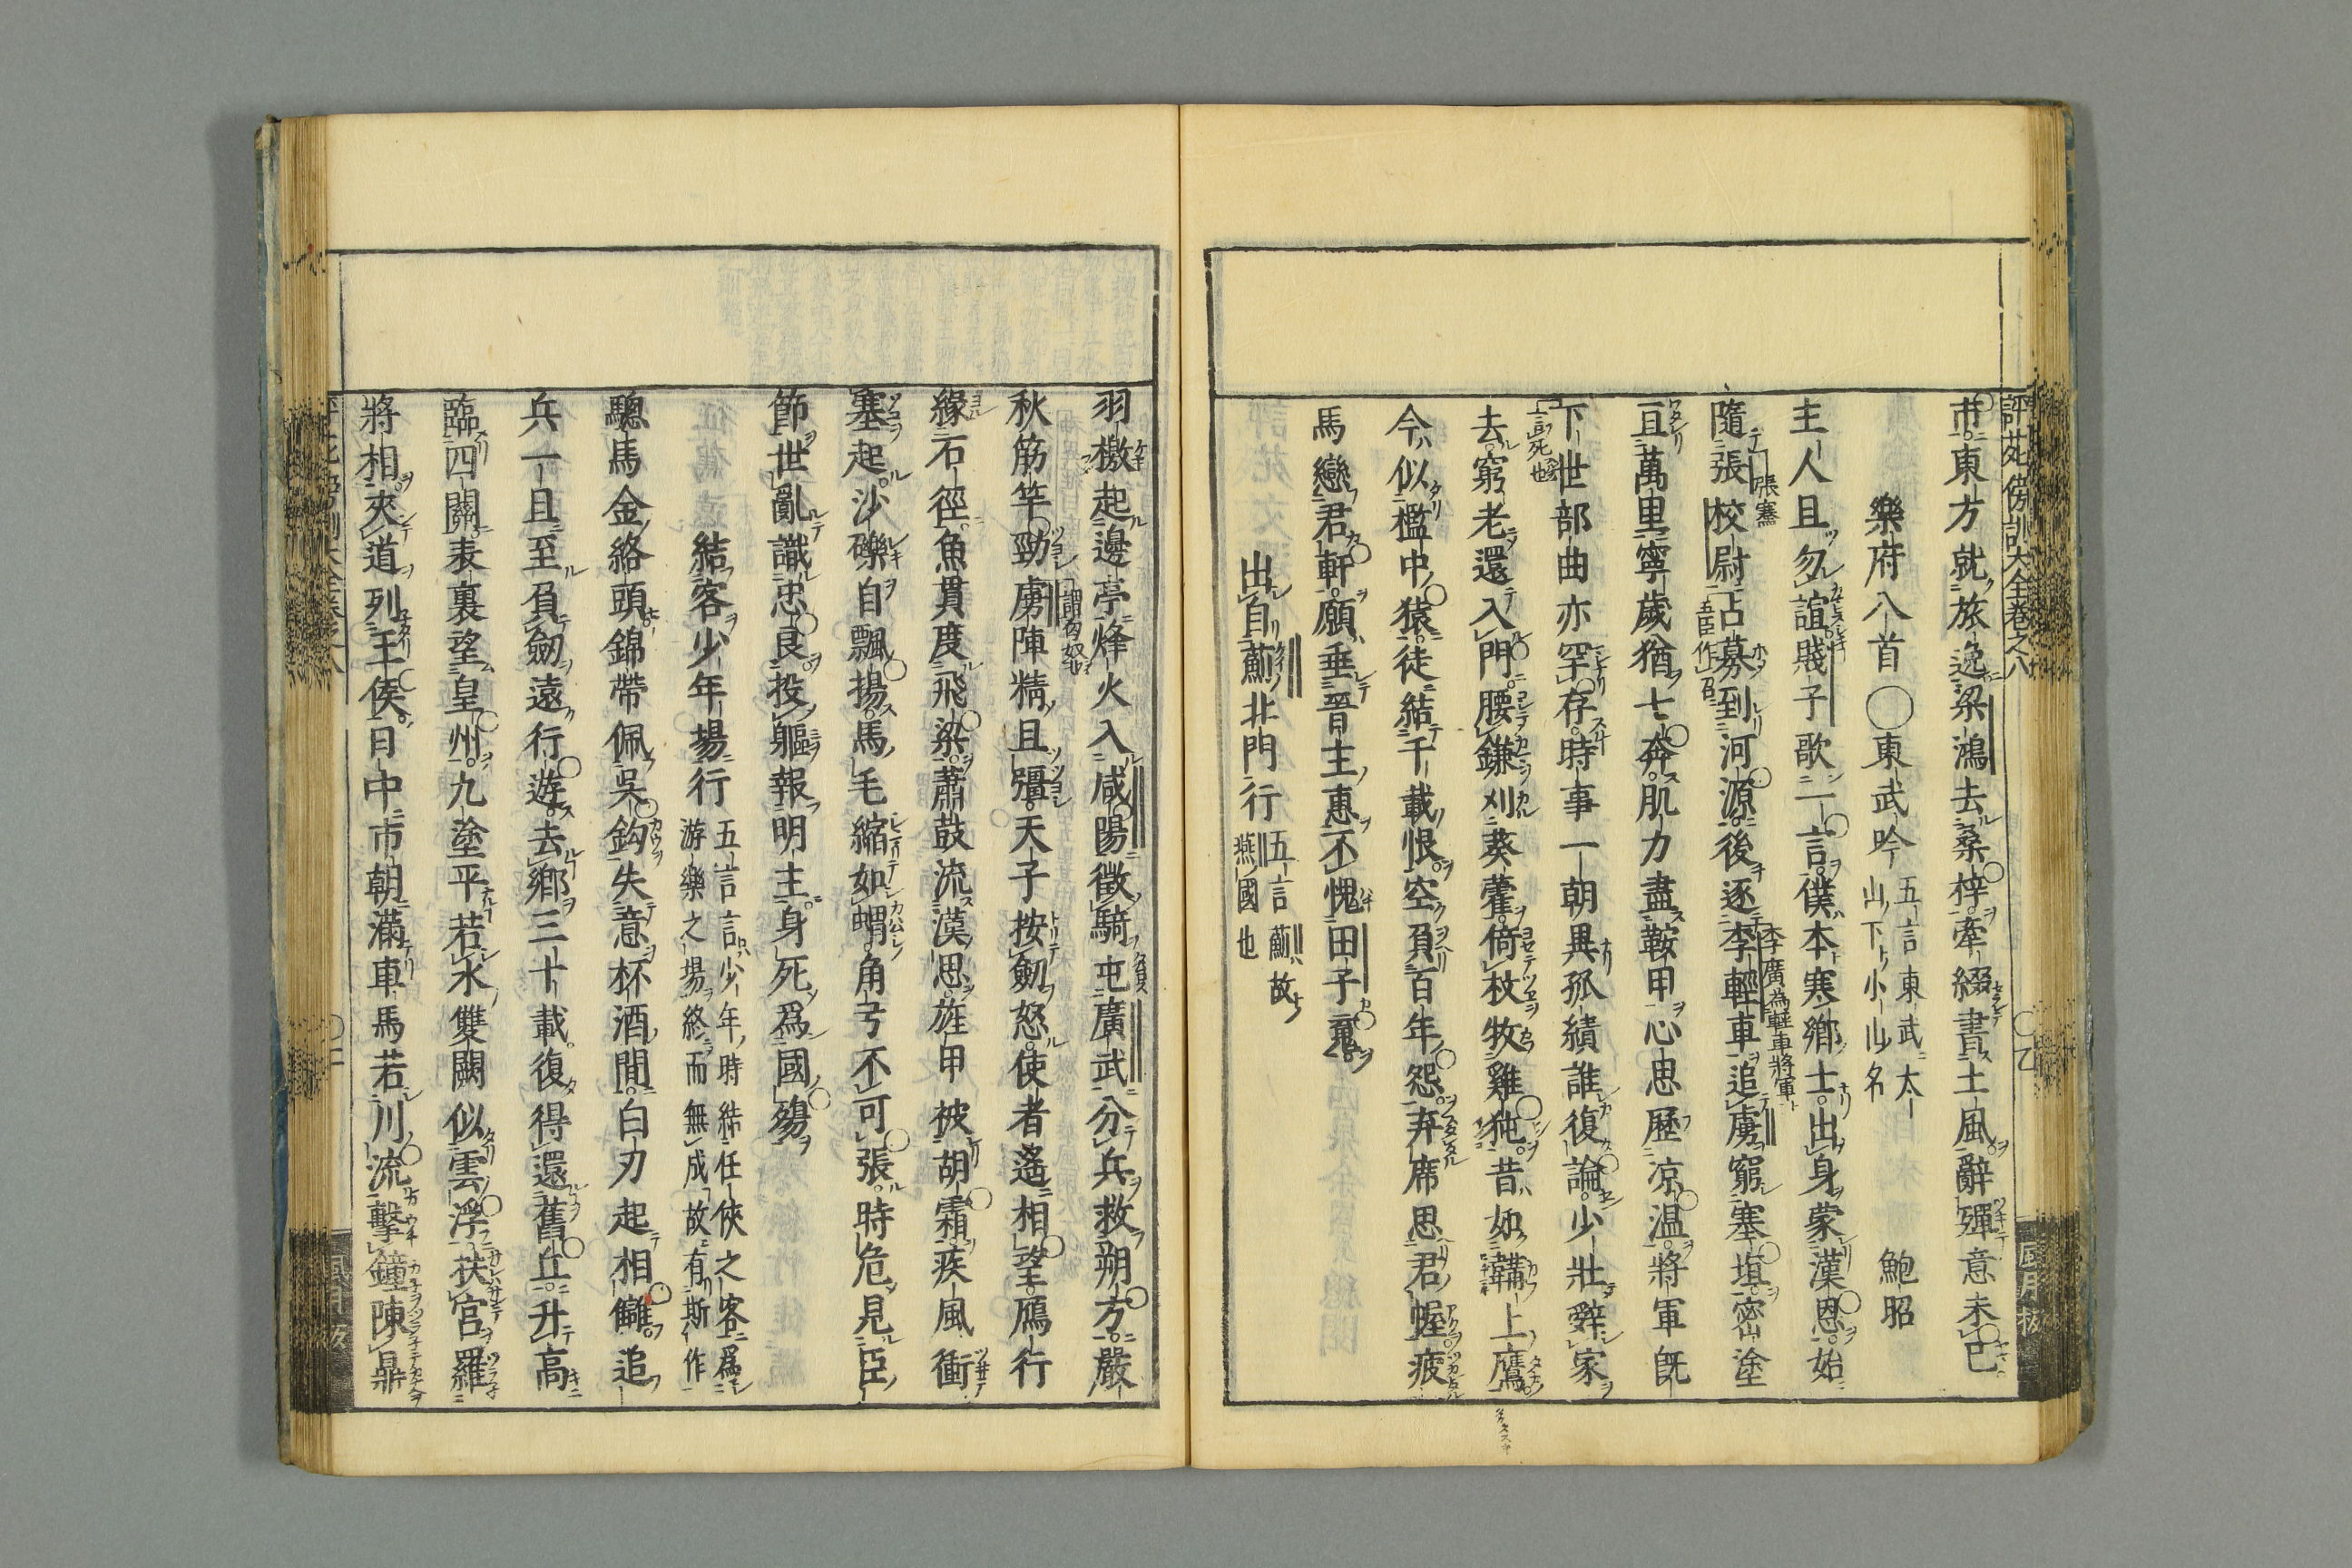 評苑傍訓大全卷之八
市東方就旅逸梁鴻去桑梓牽綴書土風辭殫意未已
樂府八首〇東武吟 五言東武太山下小山名 鮑昭
主人且勿諠賤子歌一言僕本寒鄉士出身蒙漢恩始
隨張校尉占募到河源後逐李輕車追虜窮塞垣密塗
張騫
五臣作召
李廣為輕車將軍
亘萬里寧歲猶七奔肌力盡鞍甲心思歷涼温將軍旣
下世部曲亦罕存時事一朝異孤績誰復論少壯辭家
言死也
去窮老還入門腰鎌刈葵藿倚杖牧雞㹠昔如鞲上鷹
今似檻中猿徒結千載恨空負百年怨弃席思君幄疲
馬戀君軒願垂晉主惠不愧田子䰟
出自薊北門行 五言薊故燕國也
羽檄起邊亭烽火入咸陽徵騎屯廣武分兵救朔方嚴
秋筋竿勁虜陣精且彊天子按劒怒使者遙相望鴈行
謂匈奴也
緣石徑魚貫度飛梁蕭鼓流漢思旌甲被胡霜疾風衝
塞起沙礫自飄揚馬毛縮如蝟角弓不可張時危見臣
節世亂識忠良投軀報明主身死爲國殤
結客少年場行 五言言少年時結任俠之客爲游樂之場終而無成故有斯作
驄馬金絡頭錦帶佩吳鈎失意杯酒間白刃起相讎追
兵一旦至負劒遠行遊去鄉三十載復得還舊丘升高
臨四關表裏望皇州九塗平若水雙闕似雲浮扶宮羅
將相夾道列王侯日中市朝滿車馬若川流擊鐘陳鼎